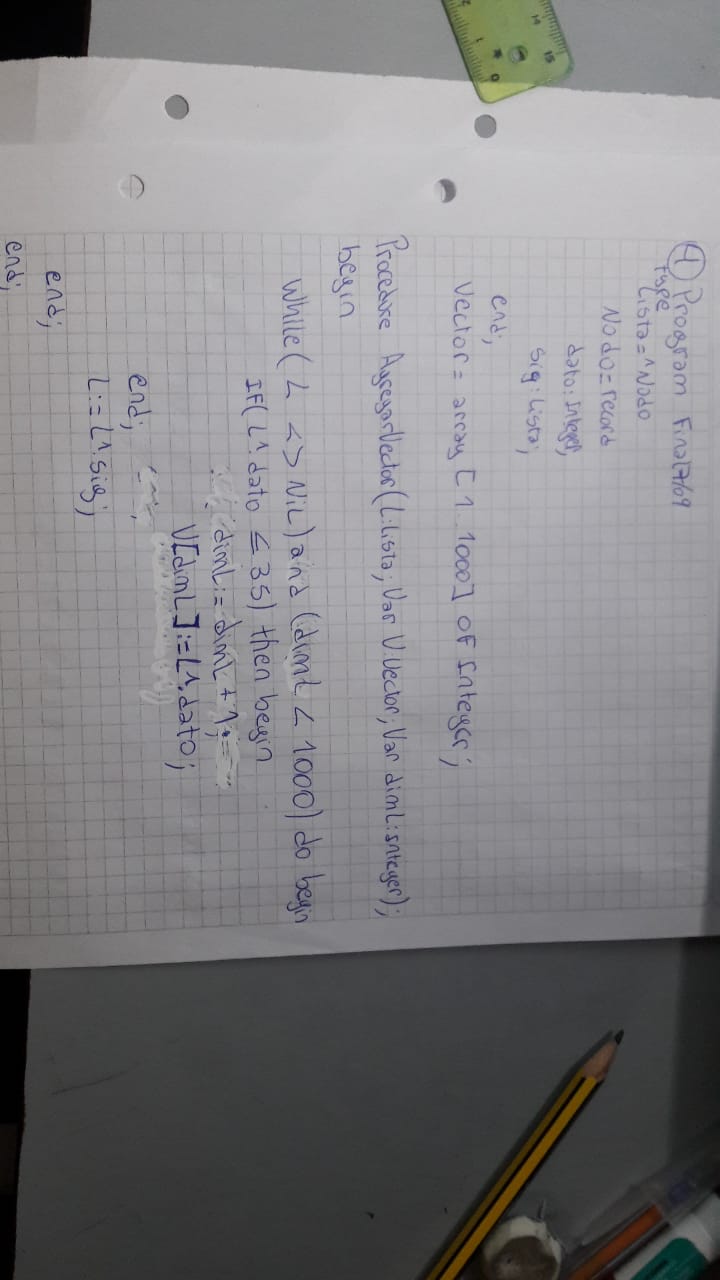 ① Program Final7/09
type
Lista = ^Nodo
Nodo = record
dato: Integer;
sig: Lista;
end;
Vector = array [1..1000] OF Integer;
Procedure AgregarVector(L:Lista; Var V:Vector; Var dimL:Integer);
begin
While( L <> NiL) and (dimL < 1000) do begin
IF( L^.dato ≤ 35) then begin
dimL:= dimL + 1;
V[dimL]:=L^.dato;
end;
L:= L^.sig;
end;
end;